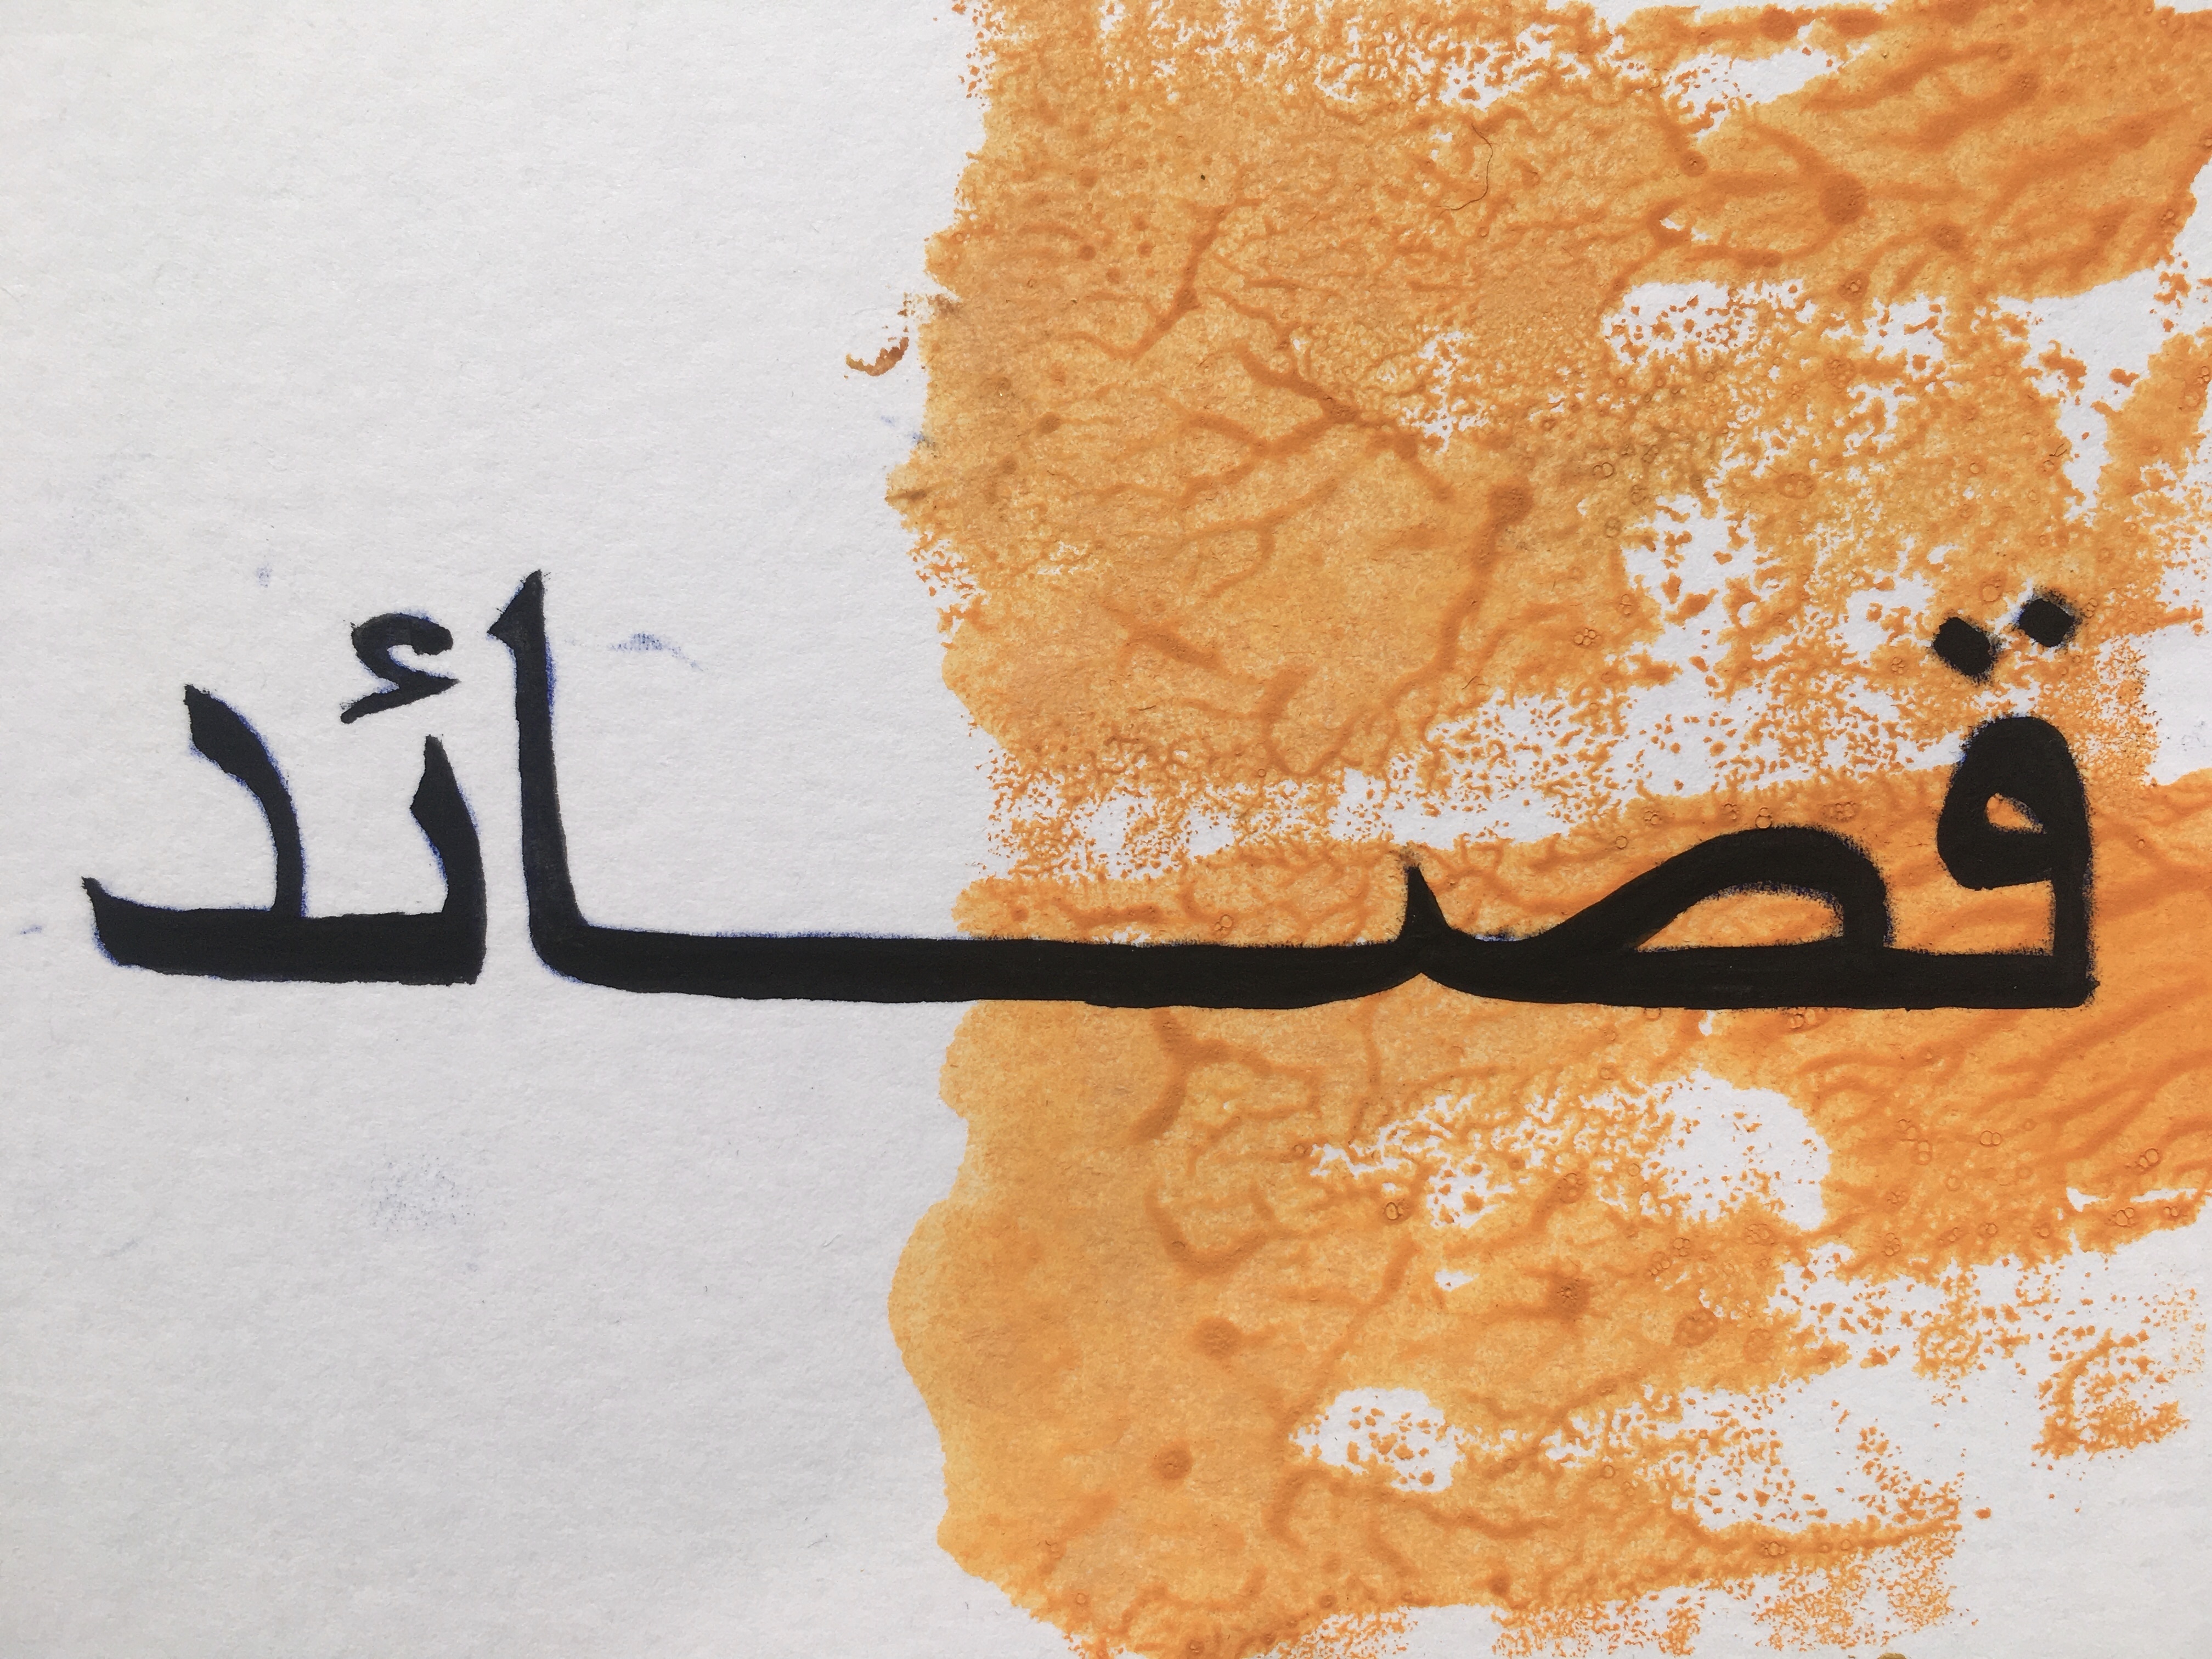 قصائد